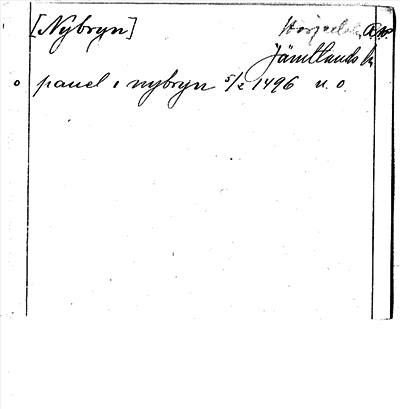 [Nybryn] Härjedal,
Jämtlands
o pauel i nybryn 5/2 1496 n. o.